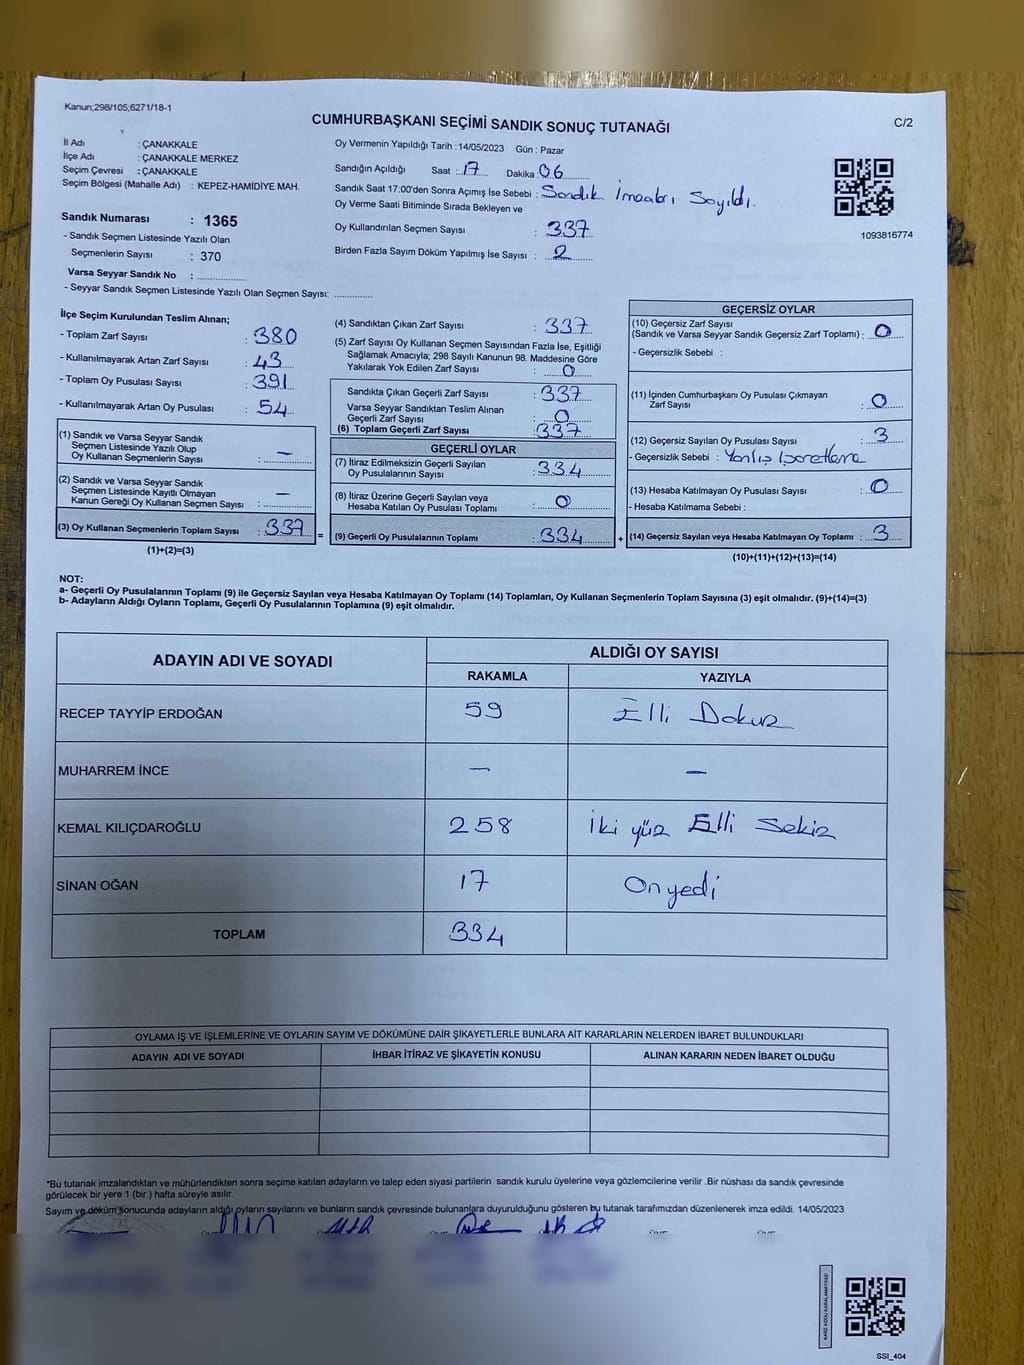 Kanun;298/105;6271/18-1
CUMHURBAŞKANI SEÇİMİ SANDIK SONUÇ TUTANAĞI
C/2
İl Adı : ÇANAKKALE
İlçe Adı : ÇANAKKALE MERKEZ
Seçim Çevresi : ÇANAKKALE
Seçim Bölgesi (Mahalle Adı) : KEPEZ-HAMİDİYE MAH.
Sandık Numarası : 1365
- Sandık Seçmen Listesinde Yazılı Olan
Seçmenlerin Sayısı : 370
Varsa Seyyar Sandık No : ..............
- Seyyar Sandık Seçmen Listesinde Yazılı Olan Seçmen Sayısı: ..............
Oy Vermenin Yapıldığı Tarih :14/05/2023 Gün : Pazar
Sandığın Açıldığı Saat : 17 Dakika : 06
Sandık Saat 17:00'den Sonra Açımış İse Sebebi : Sandık İmzaları Sayıldı.
Oy Verme Saati Bitiminde Sırada Bekleyen ve
Oy Kullandırılan Seçmen Sayısı : 337
Birden Fazla Sayım Döküm Yapılmış İse Sayısı : 2
1093816774
İlçe Seçim Kurulundan Teslim Alınan;
- Toplam Zarf Sayısı : 380
- Kullanılmayarak Artan Zarf Sayısı : 43
- Toplam Oy Pusulası Sayısı : 391
- Kullanılmayarak Artan Oy Pusulası : 54
(1) Sandık ve Varsa Seyyar Sandık
Seçmen Listesinde Yazılı Olup
Oy Kullanan Seçmenlerin Sayısı : —
(2) Sandık ve Varsa Seyyar Sandık
Seçmen Listesinde Kayıtlı Olmayan
Kanun Gereği Oy Kullanan Seçmen Sayısı : —
(3) Oy Kullanan Seçmenlerin Toplam Sayısı : 337 =
(1)+(2)=(3)
(4) Sandıktan Çıkan Zarf Sayısı : 337
(5) Zarf Sayısı Oy Kullanan Seçmen Sayısından Fazla İse, Eşitliği
Sağlamak Amacıyla; 298 Sayılı Kanunun 98. Maddesine Göre
Yakılarak Yok Edilen Zarf Sayısı : 0
Sandıkta Çıkan Geçerli Zarf Sayısı : 337
Varsa Seyyar Sandıktan Teslim Alınan
Geçerli Zarf Sayısı : 0
(6) Toplam Geçerli Zarf Sayısı : 337
GEÇERLİ OYLAR
(7) İtiraz Edilmeksizin Geçerli Sayılan
Oy Pusulalarının Sayısı : 334
(8) İtiraz Üzerine Geçerli Sayılan veya
Hesaba Katılan Oy Pusulaları Toplamı : 0
(9) Geçerli Oy Pusulalarının Toplamı : 334 +
GEÇERSİZ OYLAR
(10) Geçersiz Zarf Sayısı
(Sandık ve Varsa Seyyar Sandık Geçersiz Zarf Toplamı) : 0
- Geçersizlik Sebebi :
(11) İçinden Cumhurbaşkanı Oy Pusulası Çıkmayan
Zarf Sayısı : 0
(12) Geçersiz Sayılan Oy Pusulası Sayısı : 3
- Geçersizlik Sebebi : Yanlış İşaretleme
(13) Hesaba Katılmayan Oy Pusulası Sayısı : 0
- Hesaba Katılmama Sebebi :
(14) Geçersiz Sayılan veya Hesaba Katılmayan Oy Toplamı : 3
(10)+(11)+(12)+(13)=(14)
NOT:
a- Geçerli Oy Pusulalarının Toplamı (9) ile Geçersiz Sayılan veya Hesaba Katılmayan Oy Toplamı (14) Toplamları, Oy Kullanan Seçmenlerin Toplam Sayısına (3) eşit olmalıdır. (9)+(14)=(3)
b- Adayların Aldığı Oyların Toplamı, Geçerli Oy Pusulalarının Toplamına (9) eşit olmalıdır.
ADAYIN ADI VE SOYADI
ALDIĞI OY SAYISI
RAKAMLA YAZIYLA
RECEP TAYYİP ERDOĞAN 59 Elli Dokuz
MUHARREM İNCE — —
KEMAL KILIÇDAROĞLU 258 İki yüz Elli Sekiz
SİNAN OĞAN 17 Onyedi
TOPLAM 334
OYLAMA İŞ VE İŞLEMLERİNE VE OYLARIN SAYIM VE DÖKÜMÜNE DAİR ŞİKAYETLERLE BUNLARA AİT KARARLARIN NELERDEN İBARET BULUNDUKLARI
ADAYIN ADI VE SOYADI İHBAR İTİRAZ VE ŞİKAYETİN KONUSU ALINAN KARARIN NEDEN İBARET OLDUĞU
*Bu tutanak imzalandıktan ve mühürlendikten sonra seçime katılan adayların ve talep eden siyasi partilerin sandık kurulu üyelerine veya gözlemcilerine verilir .Bir nüshası da sandık çevresinde
görülecek bir yere 1 (bir ) hafta süreyle asılır.
Sayım ve döküm sonucunda adayların aldığı oyların sayılarını ve bunların sandık çevresinde bulunanlara duyurulduğunu gösteren bu tutanak tarafımızdan düzenlenerek imza edildi. 14/05/2023
SSI_404